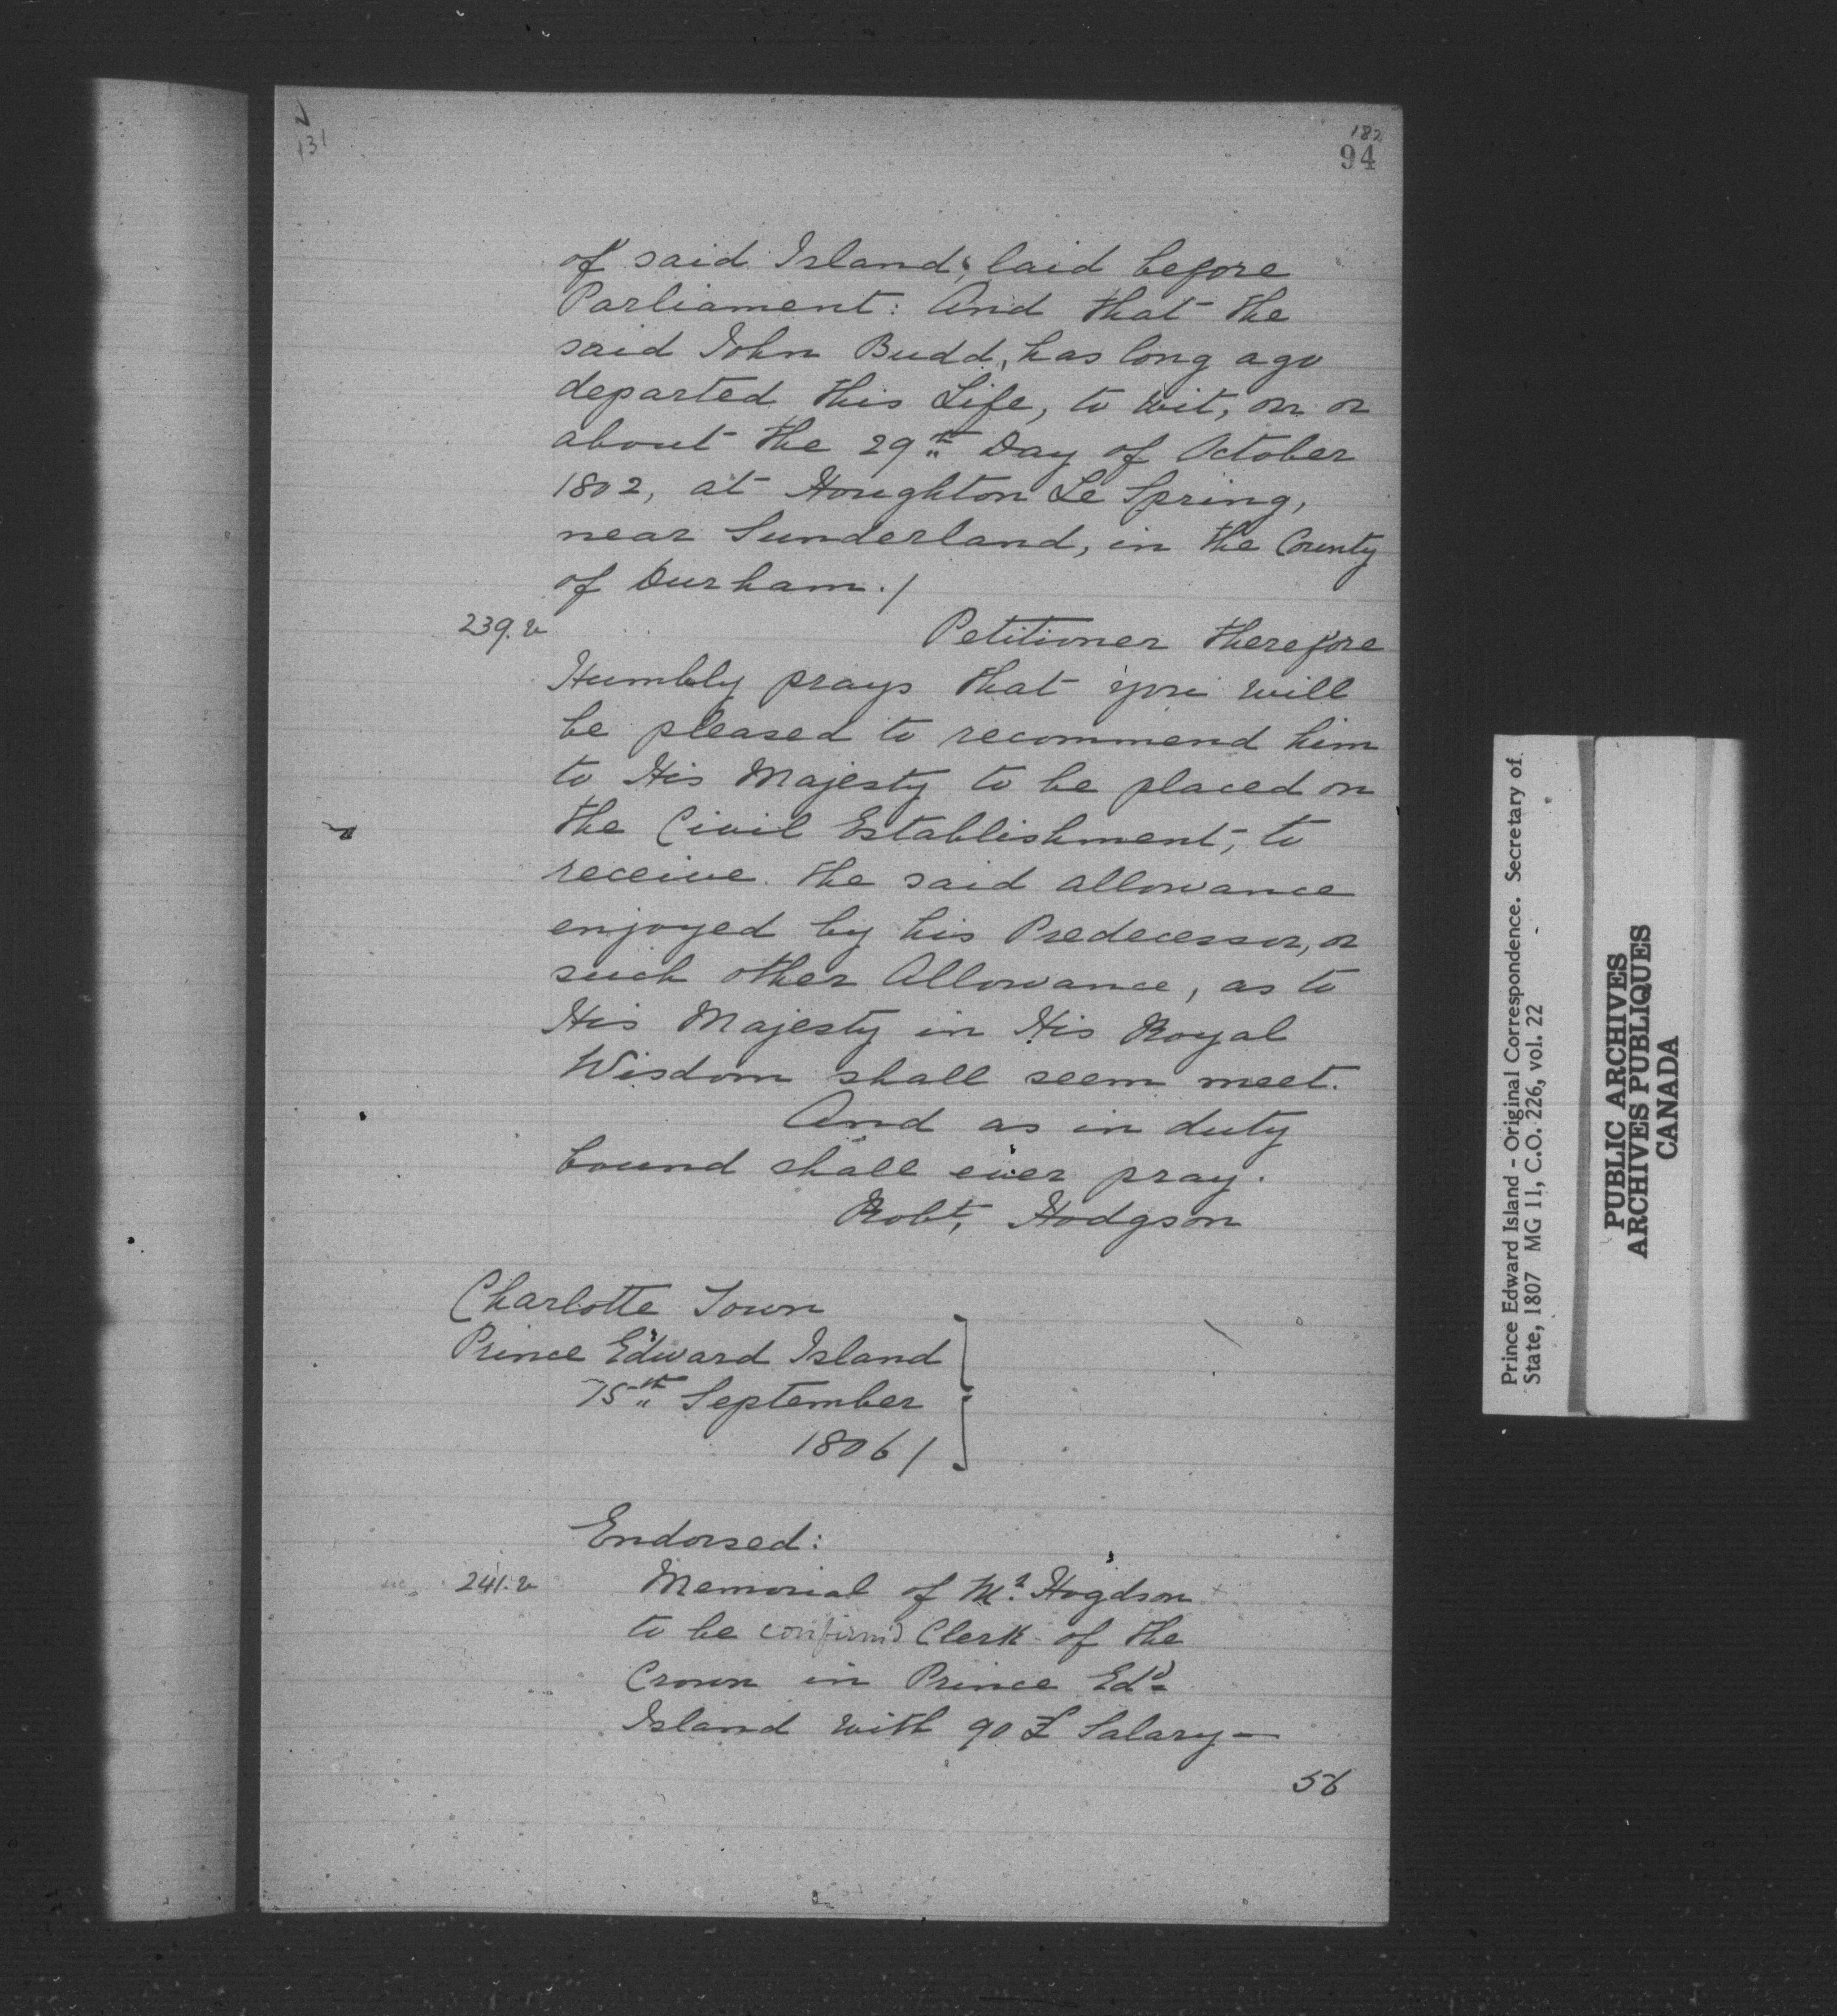 131
182
94
of said Island; laid before
Parliament: And that the
said John Budd, has long ago
departed this Life, to wit, on or
about the 29th Day of October
1802, at Houghton Le Spring,
near Sunderland, in the County
of Durham./
239.v
Petitioner therefore
Humbly prays that you will
be pleased to recommend him
to His Majesty to be placed on
the Civil Establishment, to
receive the said allowance
enjoyed by his Predecessor, or
such other Allowance, as to
His Majesty in His Royal
Wisdom shall seem meet.
And as in duty
bound shall ever pray.
Robt, Hodgson
Charlotte Town
Prince Edward Island
75th September
1806/
Endorsed:
241.v
Memorial of Mr. Hogdson
to be confirm'd Clerk of the
Crown in Prince Edd
Island with 90 £ Salary—
56
Prince Edward Island - Original Correspondence. Secretary of
State, 1807 MG 11, C.O. 226, vol. 22
PUBLIC ARCHIVES
ARCHIVES PUBLIQUES
CANADA